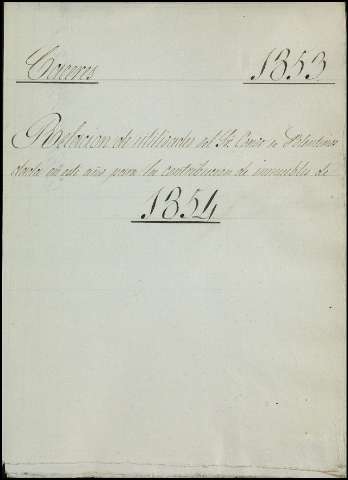 Caceres 1853
Relacion de utilidades del Sr. Conde de Polentinos
dada en este año para la contribucion de inmuebles de
1854